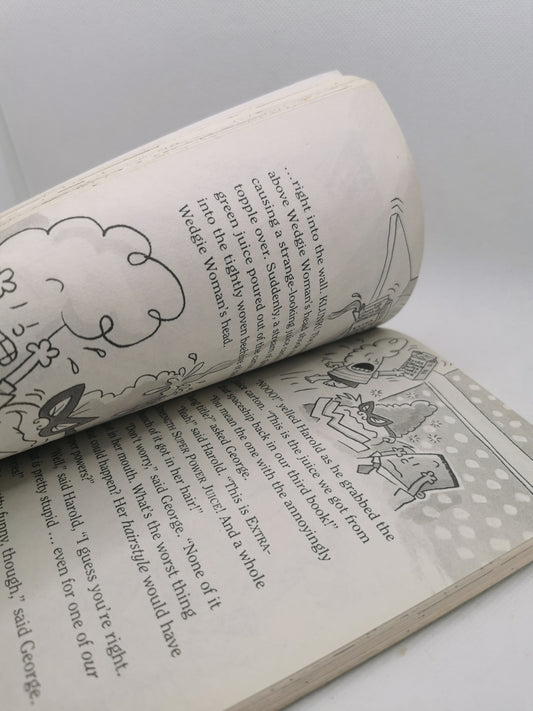 ...right into the wall. KLUNK!
above Wedgie Woman's head shook,
causing a strange-looking juice
topple over. Suddenly, a stream of
green juice poured out of the
into the tightly woven beehive
Wedgie Woman's head.
"NOOO!" yelled Harold as he grabbed the
juice carton. "This is the juice we got from
that spaceship back in our third book!"
"You mean the one with the annoyingly
title?" asked George.
"Yeah!" said Harold. "This is EXTRA-
SUPER POWER JUICE! And a whole
of it got in her hair!"
"Don't worry," said George. "None of it
in her mouth. What's the worst thing
could happen? Her hairstyle would have
powers?"
said Harold, "I guess you're right.
is pretty stupid ... even for one of our
funny, though," said George.